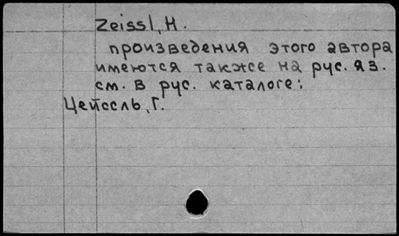 Zeissl, H.
произведения этого автора
имеются также на рус. яз.
см. в рус. каталоге:
Цейссль, Г.